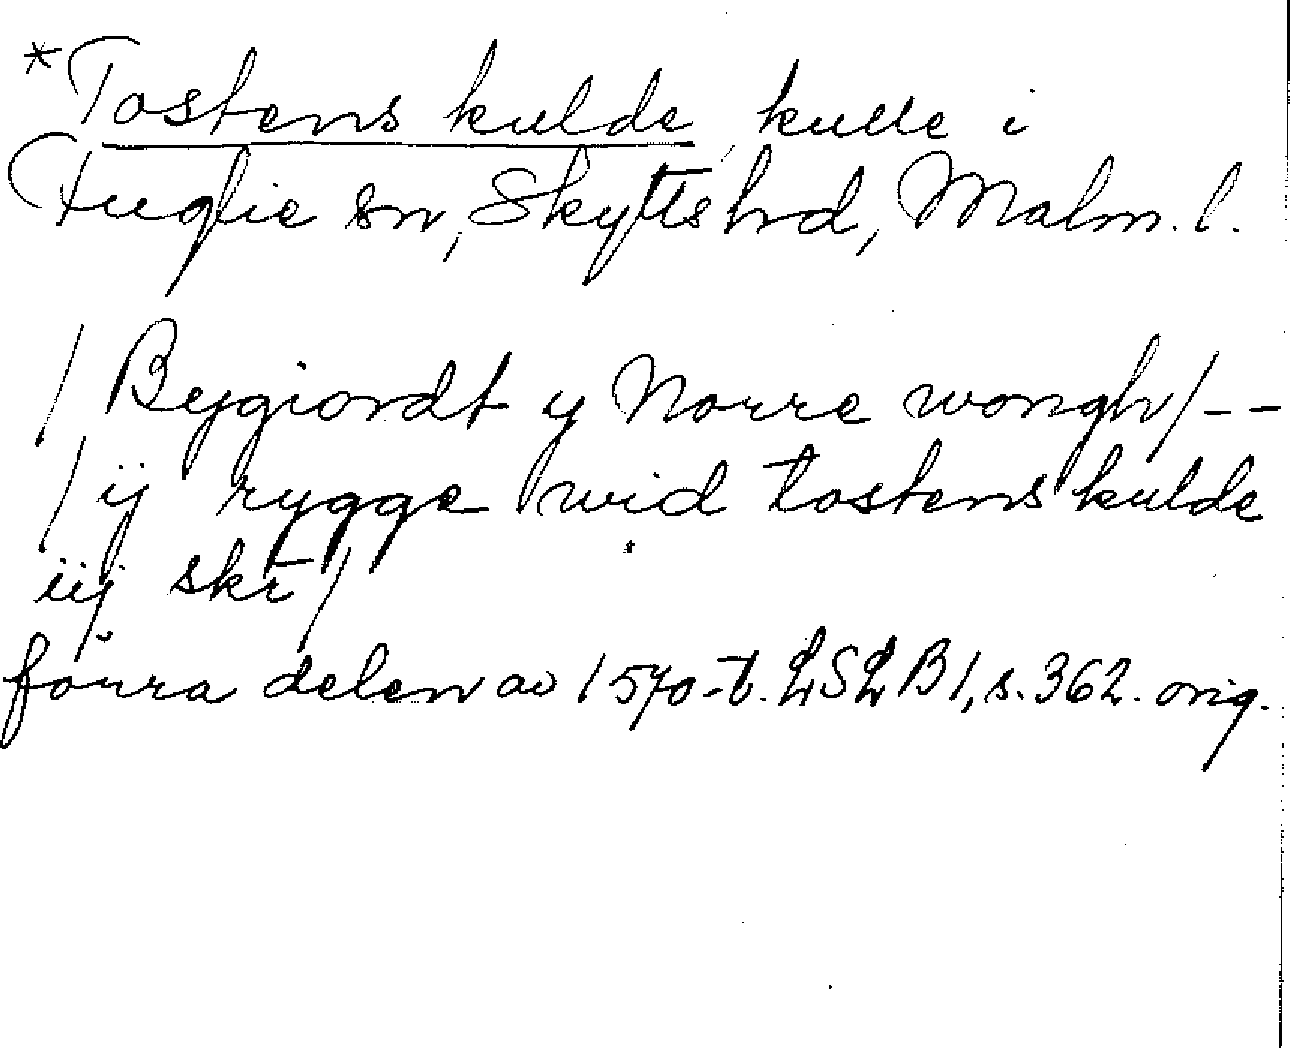 *Tostens kulde, kulle i
Fuglie sn, Skytts hrd, Malm. l.
/ Bygiordt y Norre wongh/--
/ ij rygge wid tostens kulde
iij skr/
förra delen av 1570-t. LSLB1, s. 362. orig.